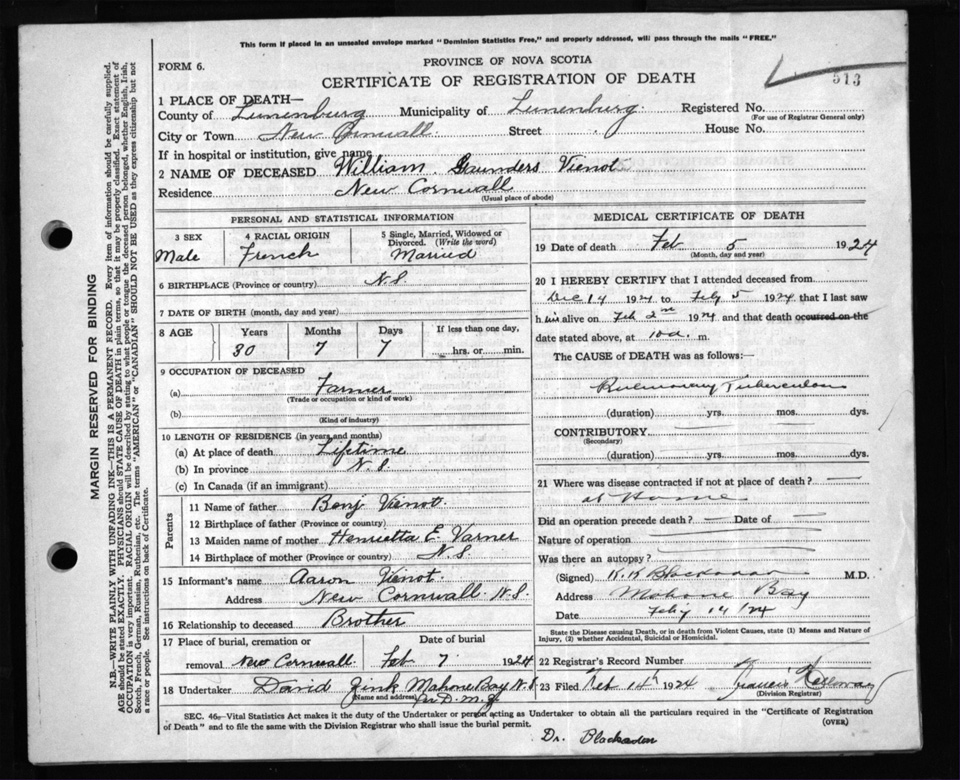 This form if placed in an unsealed envelope marked "Dominion Statistics Free," and properly addressed, will pass through the mails "FREE."
FORM 6.
PROVINCE OF NOVA SCOTIA
CERTIFICATE OF REGISTRATION OF DEATH
513
1 PLACE OF DEATH—
County of Lunenburg Municipality of Lunenburg Registered No.
(For use of Registrar General only)
City or Town New Cornwall Street House No.
If in hospital or institution, give name
2 NAME OF DECEASED William Saunders Vienot
Residence New Cornwall
(Usual place of abode)
PERSONAL AND STATISTICAL INFORMATION
3 SEX 4 RACIAL ORIGIN 5 Single, Married, Widowed or Divorced. (Write the word)
Male French Married
6 BIRTHPLACE (Province or country) N.S.
7 DATE OF BIRTH (month, day and year)
8 AGE Years Months Days If less than one day,
30 7 7 hrs. or min.
9 OCCUPATION OF DECEASED
(a) Farmer
(Trade or occupation or kind of work)
(b)
(Kind of industry)
10 LENGTH OF RESIDENCE (in years and months)
(a) At place of death Lifetime
(b) In province N.S.
(c) In Canada (if an immigrant)
Parents
11 Name of father Benj Vienot
12 Birthplace of father (Province or country)
13 Maiden name of mother Henrietta E. Varner
14 Birthplace of mother (Province or country) N.S.
15 Informant's name Aaron Vienot
Address New Cornwall N.S.
16 Relationship to deceased Brother
17 Place of burial, cremation or removal Date of burial
New Cornwall Feb 7 1924
18 Undertaker David Zink Mahone Bay N.S.
(Name and address)
MEDICAL CERTIFICATE OF DEATH
19 Date of death Feb 5 1924
(Month, day and year)
20 I HEREBY CERTIFY that I attended deceased from
Dec 14 1924 to Feby 5 1924 that I last saw
him alive on Feb 2nd 1924 and that death occurred on the
date stated above, at 10 a. m.
The CAUSE of DEATH was as follows:—
Pulmonary Tuberculosis
(duration) yrs. mos. dys.
CONTRIBUTORY
(Secondary)
(duration) yrs. mos. dys.
21 Where was disease contracted if not at place of death?
at Home
Did an operation precede death? Date of
Nature of operation
Was there an autopsy?
(Signed) M.D.
Address Mahone Bay
Date Feby 14/24
State the Disease causing Death, or in death from Violent Causes, state (1) Means and Nature of
Injury, (2) whether Accidental, Suicidal or Homicidal.
22 Registrar's Record Number
23 Filed Feb 14th 1924 Francis
(Division Registrar)
SEC. 46.—Vital Statistics Act makes it the duty of the Undertaker or person acting as Undertaker to obtain all the particulars required in the "Certificate of Registration
of Death" and to file the same with the Division Registrar who shall issue the burial permit.
(OVER)
Dr. Blackadar
MARGIN RESERVED FOR BINDING
N.B.—WRITE PLAINLY WITH UNFADING INK—THIS IS A PERMANENT RECORD. Every item of information should be carefully supplied.
AGE should be stated EXACTLY. PHYSICIANS should STATE CAUSE OF DEATH in plain terms, so that it may be properly classified. Exact statement of
OCCUPATION is very important. RACIAL ORIGIN will be described by stating to what people or tongue the deceased person belonged, whether English, Irish,
Scotch, French, German, Russian, Ruthenian, etc. The terms "AMERICAN" or "CANADIAN" SHOULD NOT BE USED as they express citizenship but not
a race or people. See instructions on back of Certificate.